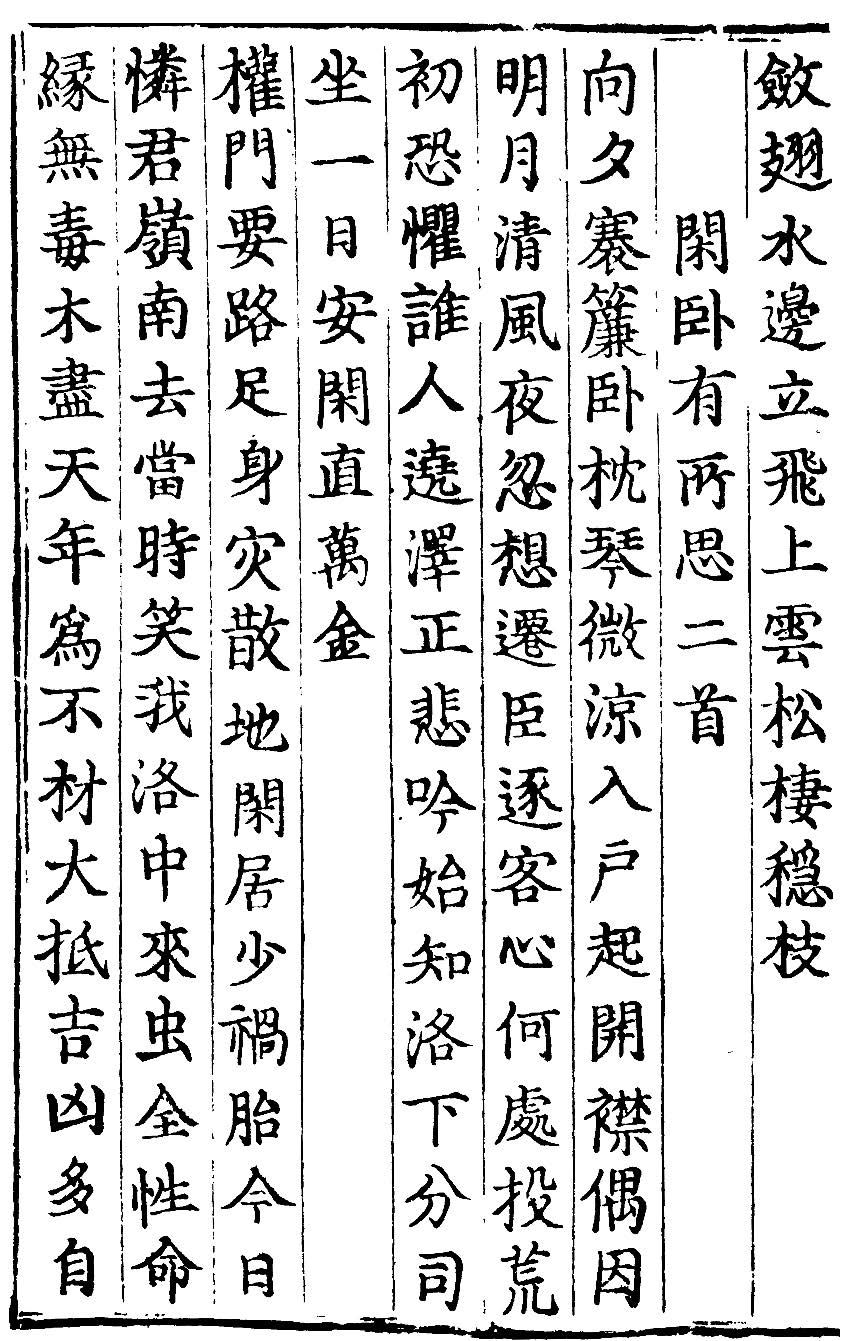 斂翅水邊立飛上雲松棲穩枝
閑卧有所思二首
向夕褰簾卧枕琴微涼入戶起開襟偶因
明月清風夜忽想遷臣逐客心何處投荒
初恐懼誰人遶澤正悲吟始知洛下分司
坐一日安閑直萬金
權門要路足身灾散地閑居少禍胎今日
憐君嶺南去當時笑我洛中來虫全性命
緣無毒木盡天年爲不材大抵吉凶多自